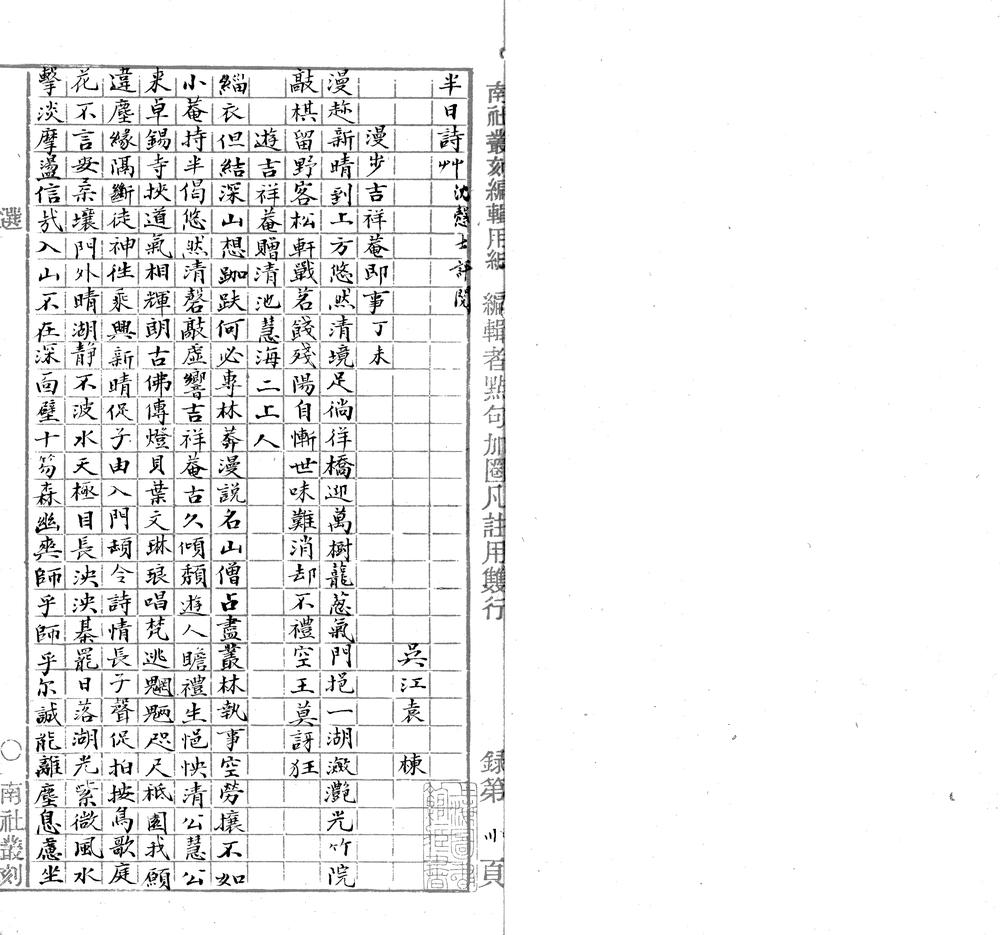 南社叢刻編輯用紙　編輯者點句加圈凡註用雙行　錄第　川　頁
半日詩艸　沈䰟士評閱
吳江袁　棟
漫步吉祥菴即事　丁未
漫趂新晴到上方悠然清境足徜徉橋迎萬樹蘢葱氣門挹一湖瀲灧光竹院
敲棋留野客松軒戰茗餞殘陽自慚世味難消却不禮空王莫訝狂
遊吉祥菴贈清池慧海二上人
緇衣但結深山想跏趺何必專林莽漫説名山僧占盡叢林執事空勞攘不如
小菴持半偈悠然清磬敲虛響吉祥菴古久傾頹遊人瞻禮生悒怏清公慧公
来卓錫寺挾道氣相輝朗古佛傳燈貝葉文琳琅唱梵逃魍魎咫尺秪園我願
違塵緣隔斷徒神徃乘興新晴促子由入門頡令詩情長子聲促拍按鳥歌庭
花不言安桑壤門外晴湖靜不波水天極目長泱泱棊罷日落湖光紫微風水
擊淡摩盪信㢤入山不在深面壁十笏森幽爽師乎師乎尔誠能離塵息慮坐
選
〇
南社叢刻